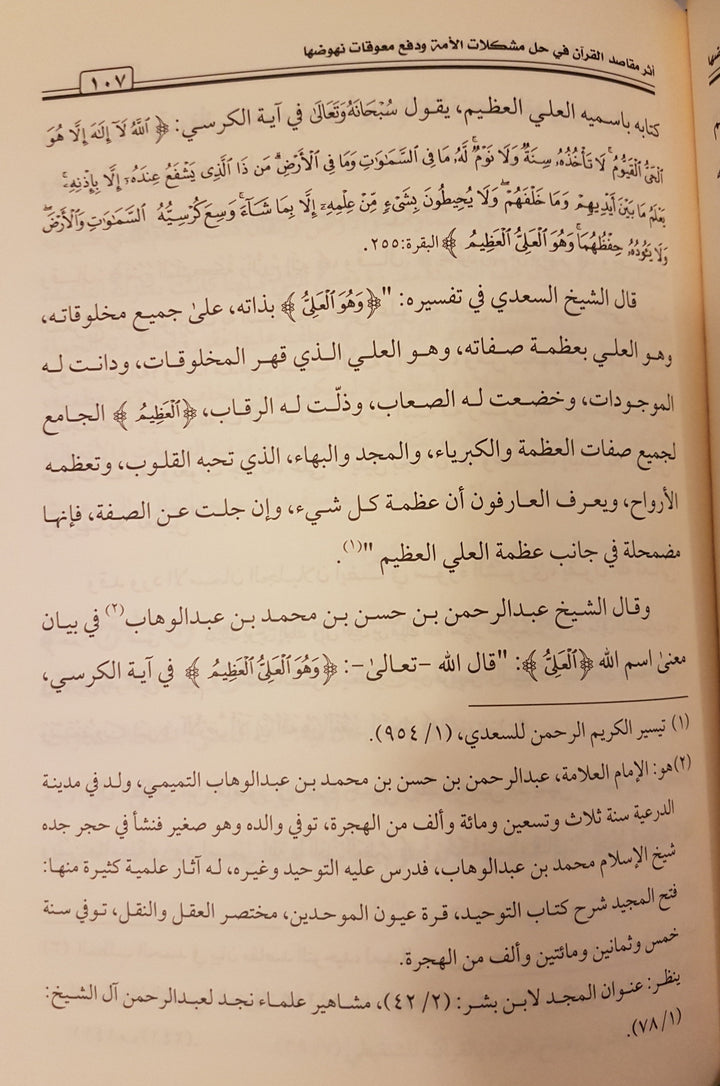 أثر مقاصد القرآن في حل مشكلات الأمة ودفع معوقات نهوضها
١٠٧
كتابه باسميه العلي العظيم، يقول سُبْحَانَهُ وَتَعَالَىٰ في آية الكرسي: ﴿ ٱللَّهُ لَآ إِلَٰهَ إِلَّا هُوَ
ٱلْحَىُّ ٱلْقَيُّومُ ۚ لَا تَأْخُذُهُۥ سِنَةٌ وَلَا نَوْمٌ ۚ لَّهُۥ مَا فِى ٱلسَّمَٰوَٰتِ وَمَا فِى ٱلْأَرْضِ ۗ مَن ذَا ٱلَّذِى يَشْفَعُ عِندَهُۥٓ إِلَّا بِإِذْنِهِۦ ۚ
يَعْلَمُ مَا بَيْنَ أَيْدِيهِمْ وَمَا خَلْفَهُمْ ۖ وَلَا يُحِيطُونَ بِشَىْءٍ مِّنْ عِلْمِهِۦٓ إِلَّا بِمَا شَآءَ ۚ وَسِعَ كُرْسِيُّهُ ٱلسَّمَٰوَٰتِ وَٱلْأَرْضَ ۖ
وَلَا يَـُٔودُهُۥ حِفْظُهُمَا ۚ وَهُوَ ٱلْعَلِىُّ ٱلْعَظِيمُ ﴾ البقرة: ٢٥٥.
قال الشيخ السعدي في تفسيره: "﴿وَهُوَ ٱلْعَلِىُّ ﴾ بذاته، علىٰ جميع مخلوقاته،
وهو العلي بعظمة صفاته، وهو العلي الذي قهر المخلوقات، ودانت له
الموجودات، وخضعت له الصعاب، وذلّت له الرقاب، ﴿ٱلْعَظِيمُ ﴾ الجامع
لجميع صفات العظمة والكبرياء، والمجد والبهاء، الذي تحبه القلوب، وتعظمه
الأرواح، ويعرف العارفون أن عظمة كل شيء، وإن جلت عن الصفة، فإنها
مضمحلة في جانب عظمة العلي العظيم "(١).
وقال الشيخ عبدالرحمن بن حسن بن محمد بن عبدالوهاب(٢) في بيان
معنىٰ اسم الله ﴿ٱلْعَلِىُّ ﴾: "قال الله –تعالىٰ–: ﴿وَهُوَ ٱلْعَلِىُّ ٱلْعَظِيمُ ﴾ في آية الكرسي،
(١) تيسير الكريم الرحمن للسعدي، (١/ ٩٥٤).
(٢) هو: الإمام العلامة، عبدالرحمن بن حسن بن محمد بن عبدالوهاب التميمي، ولد في مدينة
الدرعية سنة ثلاث وتسعين ومائة وألف من الهجرة، توفي والده وهو صغير فنشأ في حجر جده
شيخ الإسلام محمد بن عبدالوهاب، فدرس عليه التوحيد وغيره، له آثار علمية كثيرة منها:
فتح المجيد شرح كتاب التوحيد، قرة عيون الموحدين، مختصر العقل والنقل، توفي سنة
خمس وثمانين ومائتين وألف من الهجرة.
ينظر: عنوان المجد لابن بشر: (٢/ ٤٢)، مشاهير علماء نجد لعبدالرحمن آل الشيخ:
(١/ ٧٨).